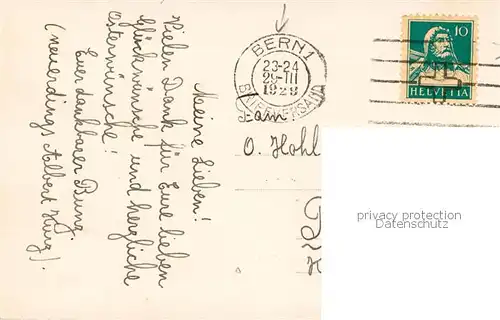 Meine Lieben!
Vielen Dank für Eure lieben
Glückwünsche und herzliche
Osterwünsche!
Euer dankbarer Bung.
(neuerdings Albert Kurz).
BERN 1
23-24
29·III
1928
BRIEFVERSAND
10
HELVETIA
Fam
O. Hohl
privacy protection
Datenschutz